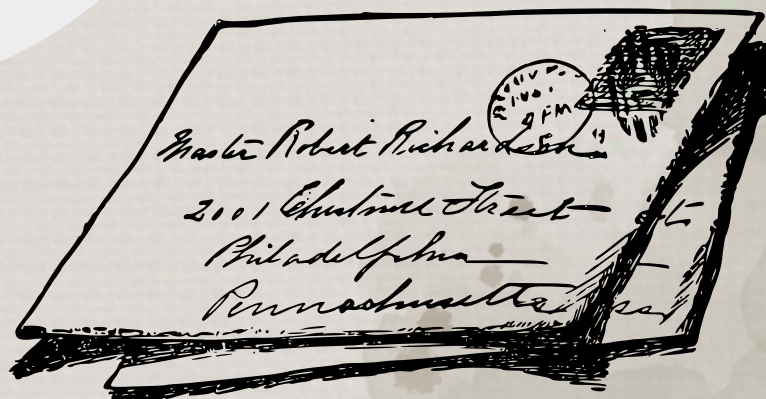 Master Robert Richardson
2001 Chestnut Street
Philadelphia
Pennachusetts